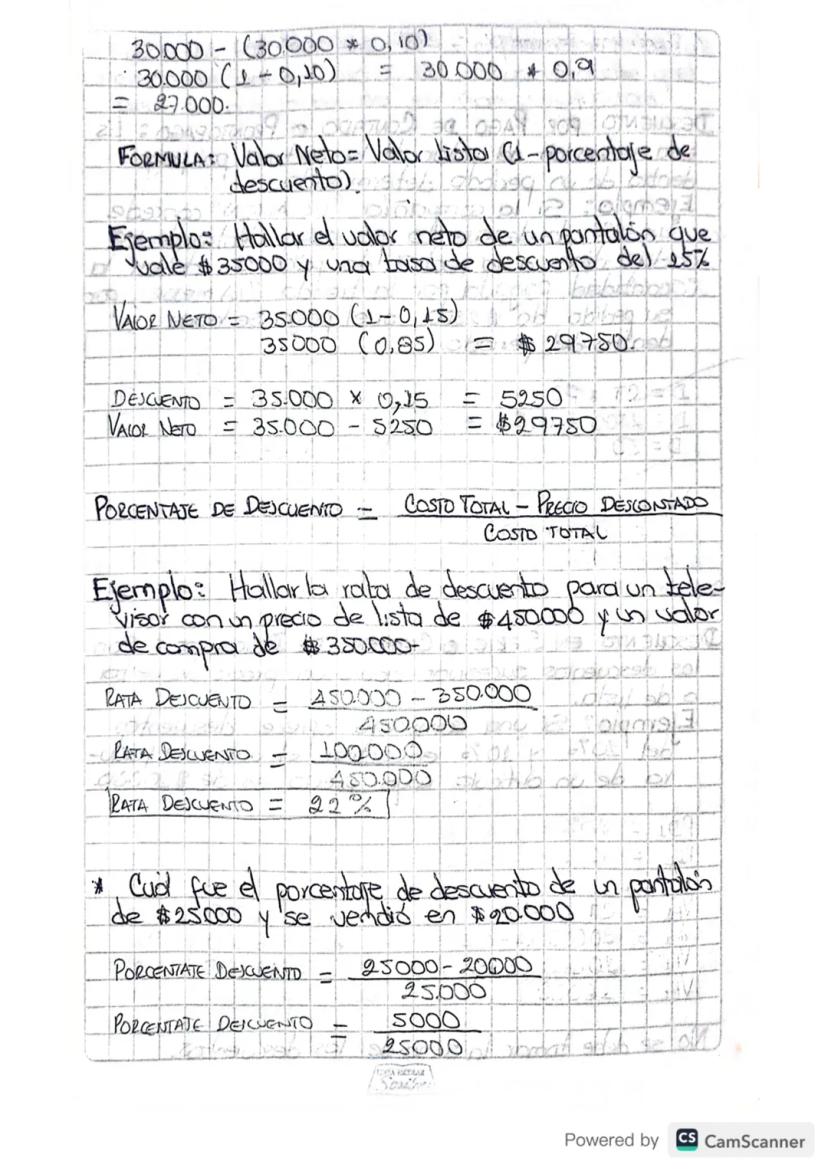 30.000 - (30.000 * 0,10)
30.000 (1 - 0,10) = 30.000 * 0,9
= 27.000.
FORMULA: Valor Neto = Valor Lista (1 - porcentaje de
descuento).
Ejemplo: Hallar el valor neto de un pantalón que
vale $35000 y una tasa de descuento del 15%
VALOR NETO = 35.000 (1-0,15)
35000 (0,85) = $29750.
DESCUENTO = 35.000 x 0,15 = 5250
VALOR NETO = 35.000 - 5250 = $29750
PORCENTAJE DE DESCUENTO = COSTO TOTAL - PRECIO DESCONTADO
COSTO TOTAL
Ejemplo: Hallar la rata de descuento para un tele-
visor con un precio de lista de $450000 y un valor
de compra de $350.000-
RATA DESCUENTO = 450.000 - 350.000
450.000
RATA DESCUENTO = 100.000
450.000
RATA DESCUENTO = 22%
* Cuál fue el porcentaje de descuento de un pantalón
de $25000 y se vendió en $20.000
PORCENTAJE DESCUENTO = 25000 - 20000
25.000
PORCENTAJE DESCUENTO = 5000
25000
Scribe
Powered by CS CamScanner